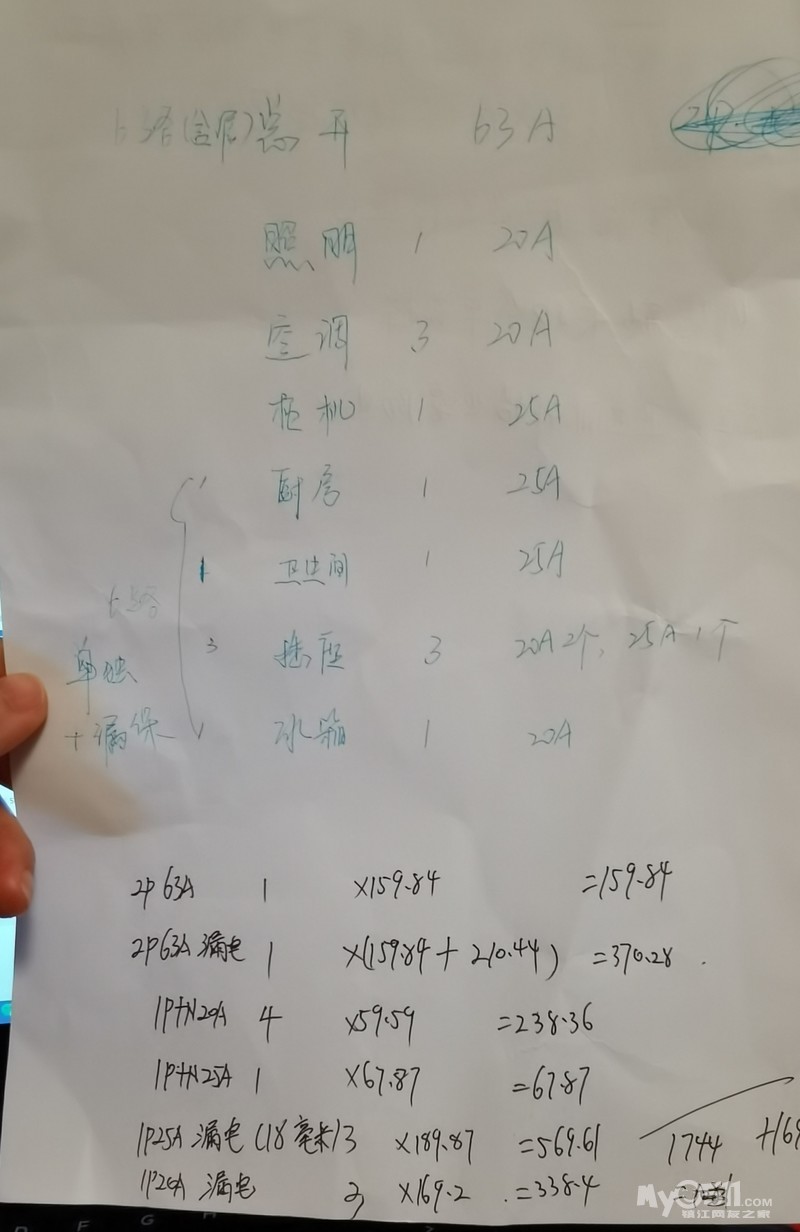 总开 63A
照明 1 20A
空调 3 20A
柜机 1 25A
1 厨房 1 25A
1 卫生间 1 25A
3 插座 3 20A 2个, 25A 1个
单独
+漏保 冰箱 1 20A
2P 63A 1 ×159.84 =159.84
2P63A 漏电 1 ×(159.84+210.44) =370.28
1P+N20A 4 ×59.59 =238.36
1P+N25A 1 ×67.87 =67.87
1P25A 漏电(18毫米) 3 ×189.87 =569.61 1744
1P20A 漏电 ×169.2 =338.4
My0511.COM
镇江网友之家